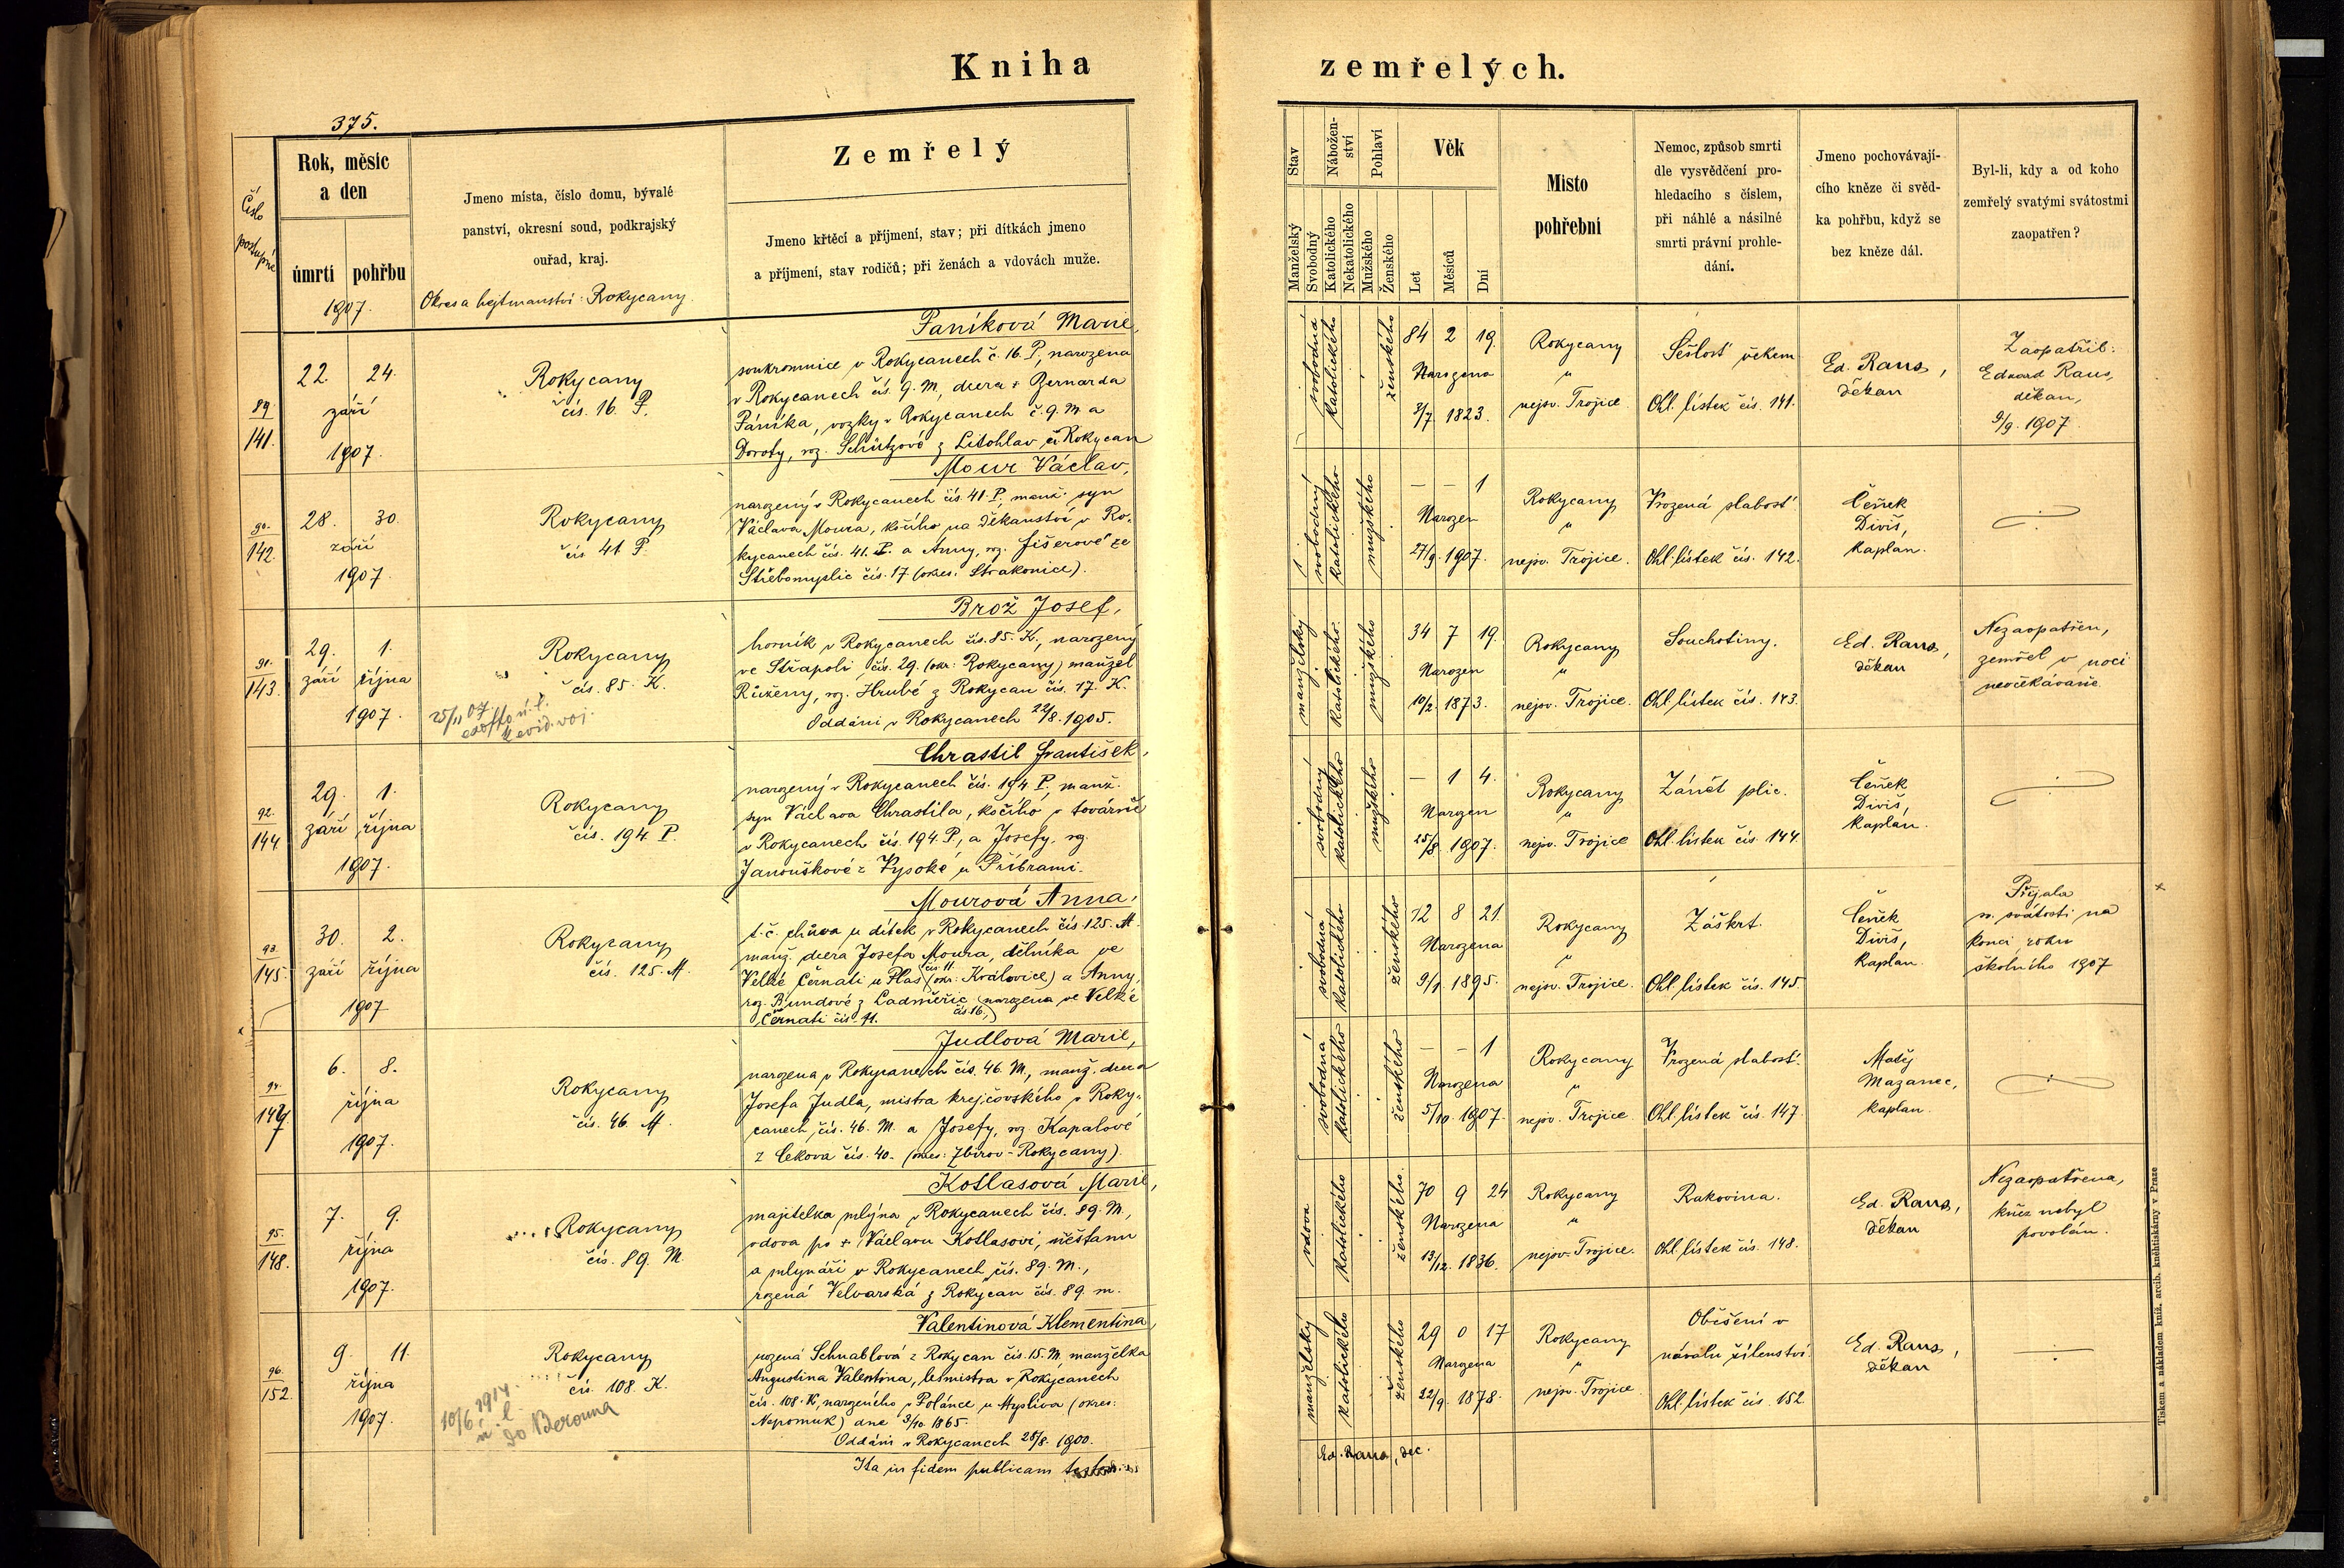 Kniha zemřelých.
375.
Číslo postupné
Rok, měsíc
a den
úmrtí
pohřbu
1907.
Jmeno místa, číslo domu, bývalé
panství, okresní soud, podkrajský
ouřad, kraj.
Okres a hejtmanství: Rokycany.
Zemřelý
Jmeno křtěcí a příjmení, stav; při dítkách jmeno
a příjmení, stav rodičů; při ženách a vdovách muže.
Stav
Manželský
Svobodný
Nábožen-
ství
Katolického
Nekatolického
Pohlaví
Mužského
Ženského
Věk
Let
Měsíců
Dní
Místo
pohřební
Nemoc, způsob smrti
dle vysvědčení pro-
hledacího s číslem,
při náhlé a násilné
smrti právní prohle-
dání.
Jmeno pochovávají-
cího kněze či svěd-
ka pohřbu, když se
bez kněze dál.
Byl-li, kdy a od koho
zemřelý svatými svátostmi
zaopatřen?
89.
141.
22. 24.
září
1907.
Rokycany
čís. 16. P.
Paníková Marie,
soukromnice v Rokycanech č. 16. P., narozena
v Rokycanech čís. 9. M, dcera + Bernarda
Páníka, vozky v Rokycanech č. 9. M. a
Doroty, roz. Schützově z Litohlav či Rokycan
svobodná
katolického
ženského
84 2 19.
Narozena
3/7 1823.
Rokycany
u
nejsv. Trojice.
Sešlosť věkem
Ohl. lístek čís. 141.
Ed. Raus,
děkan
Zaopatřil:
Eduard Raus,
děkan,
9/9. 1907.
90.
142.
28. 30.
září
1907.
Rokycany
čís 41 P.
Mour Václav,
narozený v Rokycanech čís. 41. P. manž. syn
Václava Moura, kočího na děkanství v Ro-
kycanech čís. 41. P. a Anny, roz. Fišerové ze
Střebomyslic čís. 17 (okres: Strakonice).
svobodný
katolického
mužského
— — 1
Narozen
27/9. 1907.
Rokycany
u
nejsv. Trojice.
Vrozená slabosť
Ohl. lístek čís. 142.
Čeněk
Diviš,
kaplan.
91.
143.
29. 1.
září října
1907.
Rokycany
čís. 85. K.
25/11 07.
Brož Josef,
horník v Rokycanech čís. 85. K., narozený
ve Střapoli čís. 29. (okr: Rokycany) manžel
Růženy, roz. Hrubé z Rokycan čís. 17. K.
Oddáni v Rokycanech 22/8. 1905.
manželský
katolického
mužského
34 7 19.
Narozen
10/2. 1873.
Rokycany
u
nejsv. Trojice.
Souchotiny.
Ohl. lístek čís. 143.
Ed. Raus,
děkan
Nezaopatřen,
zemřel v noci
neočekávaně
92.
144.
29. 1.
září října
1907.
Rokycany
čís. 194 P.
Chrastil František,
narozený v Rokycanech čís. 194 P., manž.
syn Václava Chrastila, kočího v továrně
v Rokycanech čís. 194. P., a Josefy, roz.
Janouškové z Vysoké u Příbrami.
svobodný
katolického
mužského
— 1 4.
Narozen
25/8. 1907.
Rokycany
u
nejsv. Trojice
Zánět plic.
Ohl. lístek čís. 144.
Čeněk
Diviš,
kaplan.
93.
145.
30. 2.
září října
1907
Rokycany
čís. 125. M.
Mourová Anna,
t. č. chůva u dítek v Rokycanech čís. 125. M.
manž. dcera Josefa Moura, dělníka ve
Velké Černati čís. 11. u Plas (okr: Kralovice) a Anny,
roz. Bundové z Ladměřic čís. 16., (narozena ve Velké
Černati čís. 11.
svobodná
katolického
ženského
12 8 21.
Narozena
9/1. 1895.
Rokycany
u
nejsv. Trojice.
Záškrt.
Ohl. lístek čís. 145
Čeněk
Diviš,
kaplan.
Přijala
sv. svátosti na
konci roku
školního 1907
94.
147.
6. 8.
října
1907.
Rokycany
čís. 46. M.
Judlová Marie,
narozena v Rokycanech čís. 46. M., manž. dcera
Josefa Judla, mistra krejčovského v Roky-
canech čís. 46. M. a Josefy, roz. Kapalové
z Cekova čís. 40. (okres: Zbirov-Rokycany).
svobodná
katolického
ženského
— — 1
Narozena
5/10. 1907.
Rokycany
u
nejsv. Trojice.
Vrozená slabosť.
Ohl. lístek čís. 147.
Matěj
Mazanec,
kaplan.
95.
148.
7. 9.
října
1907.
Rokycany
čís. 89. M.
Kotlasová Marie,
majitelka mlýna v Rokycanech čís. 89. M.,
vdova po + Václavu Kotlasovi, měšťanu
a mlynáři v Rokycanech čís. 89. M.,
rozená Velvarská z Rokycan čís. 89. m.
vdova
katolického
ženského.
70 9 24
Narozena
13/12. 1836.
Rokycany
u
nejsv. Trojice.
Rakovina.
Ohl. lístek čís. 148.
Ed. Raus,
děkan
Nezaopatřena,
kněz nebyl
povolán.
96.
152.
9. 11.
října
1907.
Rokycany
čís. 108. K.
10/6 1914.
ú. l.
do Berouna
Valentinová Klementina,
rozená Schnablová z Rokycan čís. 15. M, manželka
Augustina Valentina, lesmistra v Rokycanech
čís. 108. K, narozeného v Polánce u Myslíva (okres:
Nepomuk) dne 3/10 1865.
Oddáni v Rokycanech 28/8. 1900.
manželský
katolického
ženského
29 0 17
Narozena
22/9. 1878.
Rokycany
u
nejsv. Trojice
Oběšení v
návalu šílenství.
Ohl. lístek čís. 152.
Ed. Raus,
děkan
Ita in fidem publicam
Ed. Raus, dec.
Tiskem a nákladem kníž. arcib. knihtiskárny v Praze